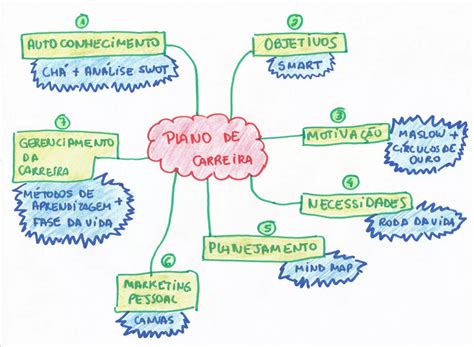 PLANO DE
CARREIRA
1
AUTOCONHECIMENTO
CHÁ + ANÁLISE SWOT
2
OBJETIVOS
SMART
3
MOTIVAÇÃO
MASLOW +
CÍRCULOS DE
OURO
4
NECESSIDADES
RODA DA VIDA
5
PLANEJAMENTO
MIND MAP
6
MARKETING
PESSOAL
CANVAS
7
GERENCIAMENTO
DA
CARREIRA
MÉTODOS DE
APRENDIZAGEM +
FASE DA VIDA